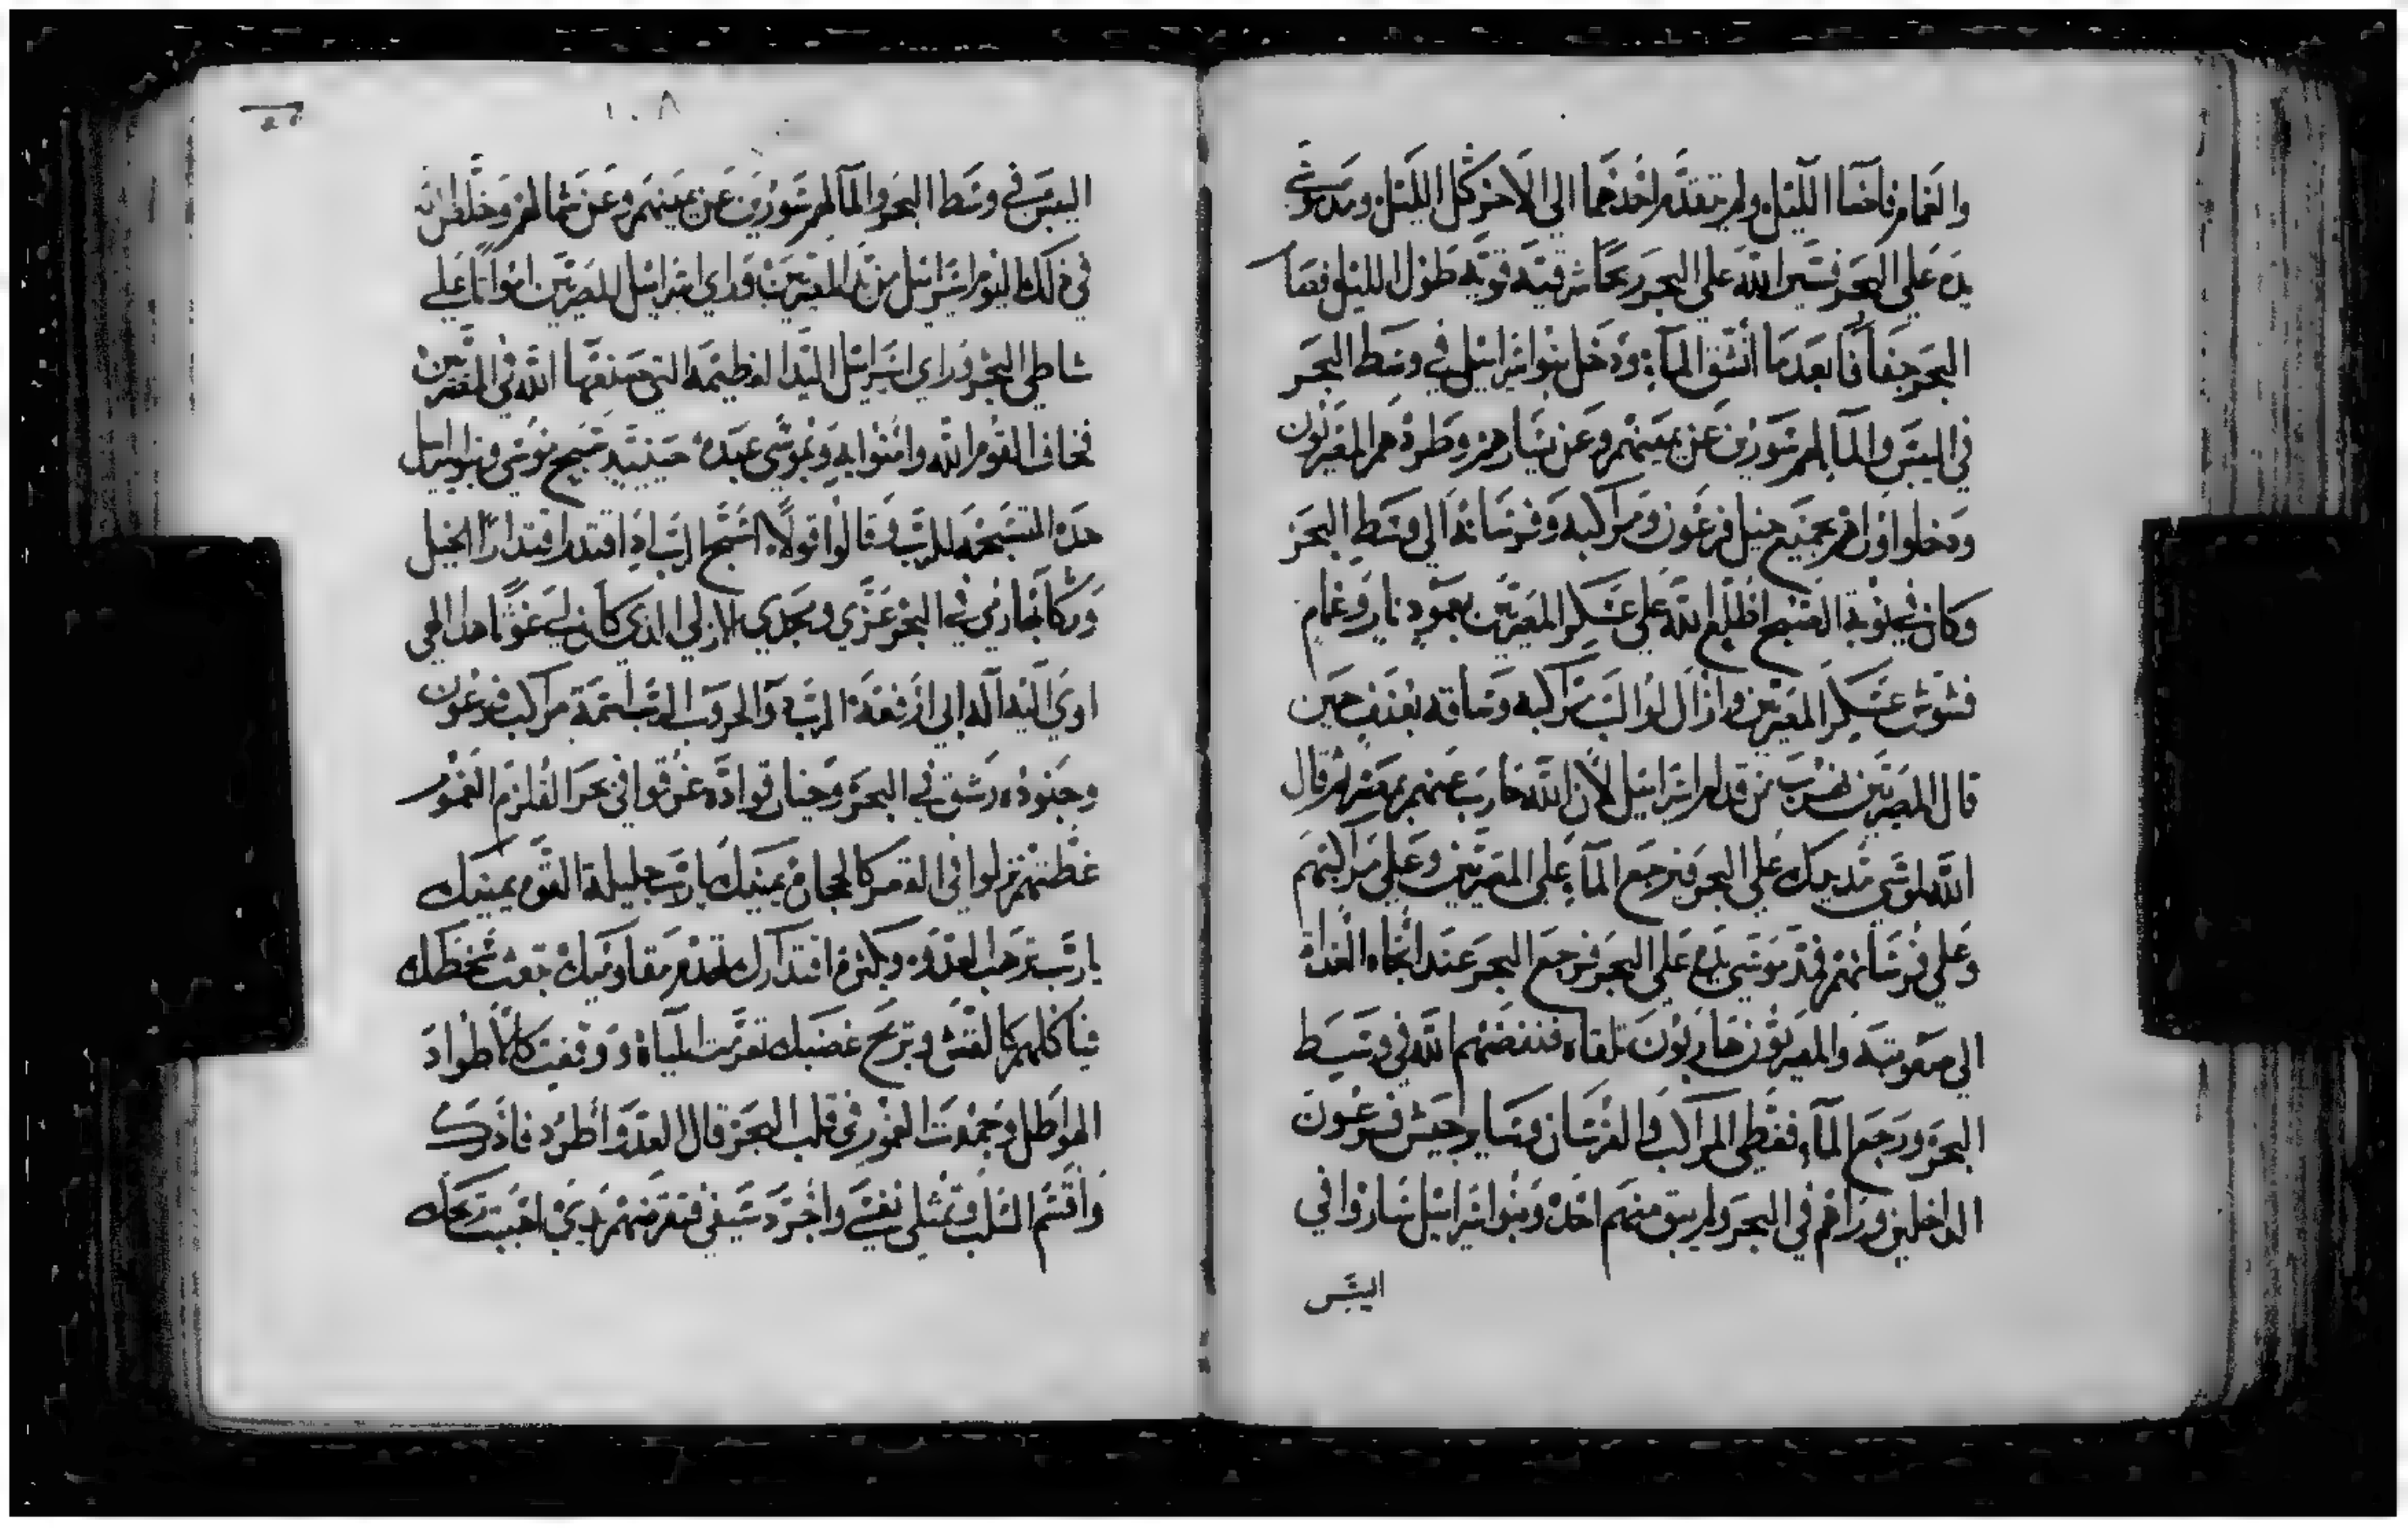 والغمام فاضا الليل ولم يتقدم احدهما الي الاخر كل الليل ومد موشي
يده علي البحر فسير الله علي البحر ريحًا شرقية قوية طول الليل فصار
البحر جفافًا بعدما أنشق المآء ودخل بنوا اسراييل في وسط البحر
في اليبس والمآ لهم سورين عن يمينهم وعن يسارهم وطردهم المصريون
ودخلوا وراهم بجميع خيل فرعون ومراكبه وفرسانه الي وسط البحر
وكان في نوبة الصبح اطلع الله علي عسكر المصريين بعمود نار وغمام
فشوش عسكر المصريين وازال لوالب مراكبه وساقه بعنف حين
قال المصريين نهرب من قدام اسراييل لأن الله حارب عنهم بمصر ثم قال
الله لموشي مد يدك علي البحر فيرجع المآء علي المصريين وعلي مراكبهم
وعلي فرسانهم فمد موسي يده علي البحر فرجع البحر عند اتجاه الغداة
الي صعوبته والمصريون هاربون تلقاه فنفضهم الله في وسط
البحر ورجع المآء فغطي المراكب والفرسان وساير جيش فرعون
الداخلين وراهم في البحر ولم يبق منهم احد وبنوا اسراييل ساروا في
اليبس
١٠٨
اليبس في وسط البحر والمآ لهم سورين عن يمينهم وعن شمالهم وخلص الله
في ذلك اليوم اسراييل من يد المصريين وراي اسراييل المصريين امواتًا علي
شاطي البحر وراي اسراييل اليد العظيمة التي صنعها الله في المصريين
فخاف القوم الله وامنوا به وبموسي عبده حينيد سبح موسي وبنوا اسراييل
هذه التسبحة للرب وقالوا قولًا اسبح الرب اد اقتدر اقتدارًا الخيل
وركابها رمي في البحر عزي ومجدي الازلي الذي كان لي غوثًا هذا الهي
اوي اليه اله ابي ارفعه الرب دآ الحروب الرب اسمه مراكب فرعون
وجنوده رشق في البحر وخيار قواده غرقوا في بحر القلزم الغمور
غطتهم نزلوا في القعر كالحجارة يمينك يارب جليلة القوه يمينك
يارب ترهب العدو وبكثرة اقتدارك تهدم مقاوميك تبعث سخطك
فياكلهم كالقش وبريح غضبك تعرمت المياه ووقفت كالأطواد
الهواطل وجمدت الغمور في قلب البحر قال العدو أطرد فادرك
واقسم السلب وتمتلي نفسي واجرد سيفي فتقرضهم يدي اهبيت ريحك